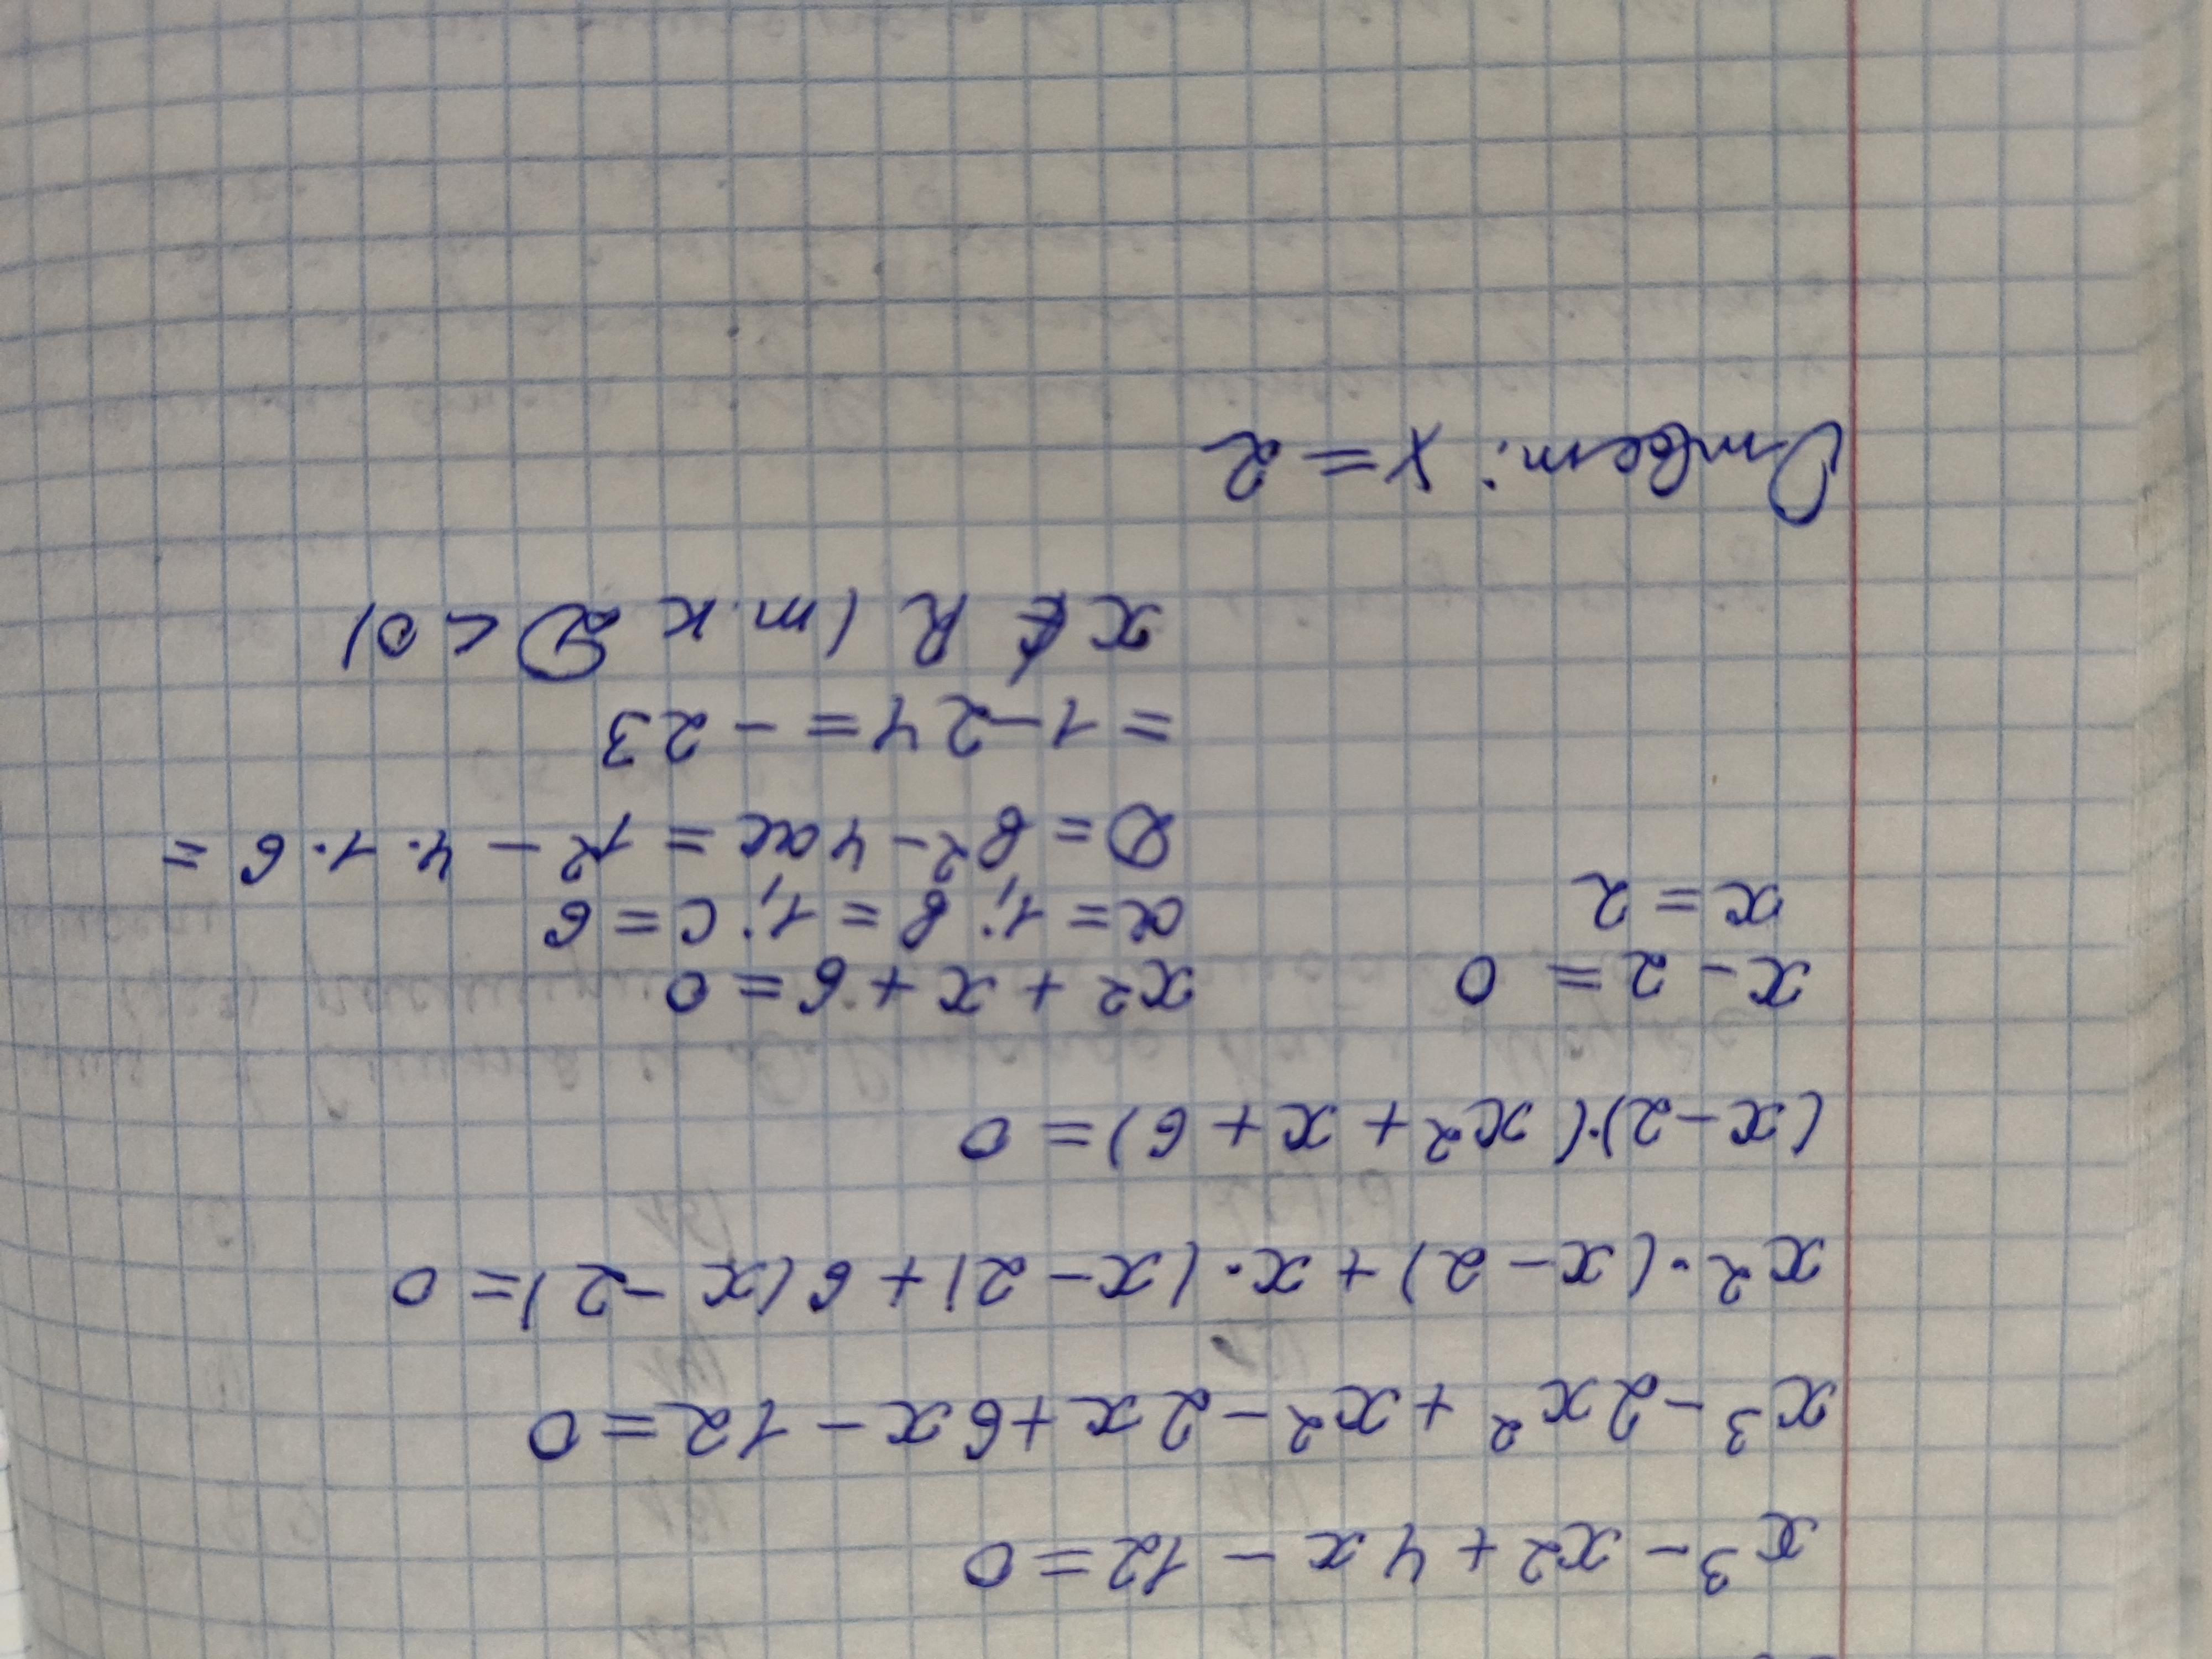 x³ - x² + 4x - 12 = 0
x³ - 2x² + x² - 2x + 6x - 12 = 0
x² · (x - 2) + x · (x - 2) + 6(x - 2) = 0
(x - 2) · (x² + x + 6) = 0
x - 2 = 0 x² + x + 6 = 0
x = 2 a = 1; b = 1; c = 6
D = b² - 4ac = 1² - 4 · 1 · 6 =
= 1 - 24 = - 23
x ∉ R (т. к D < 0)
Ответ: x = 2